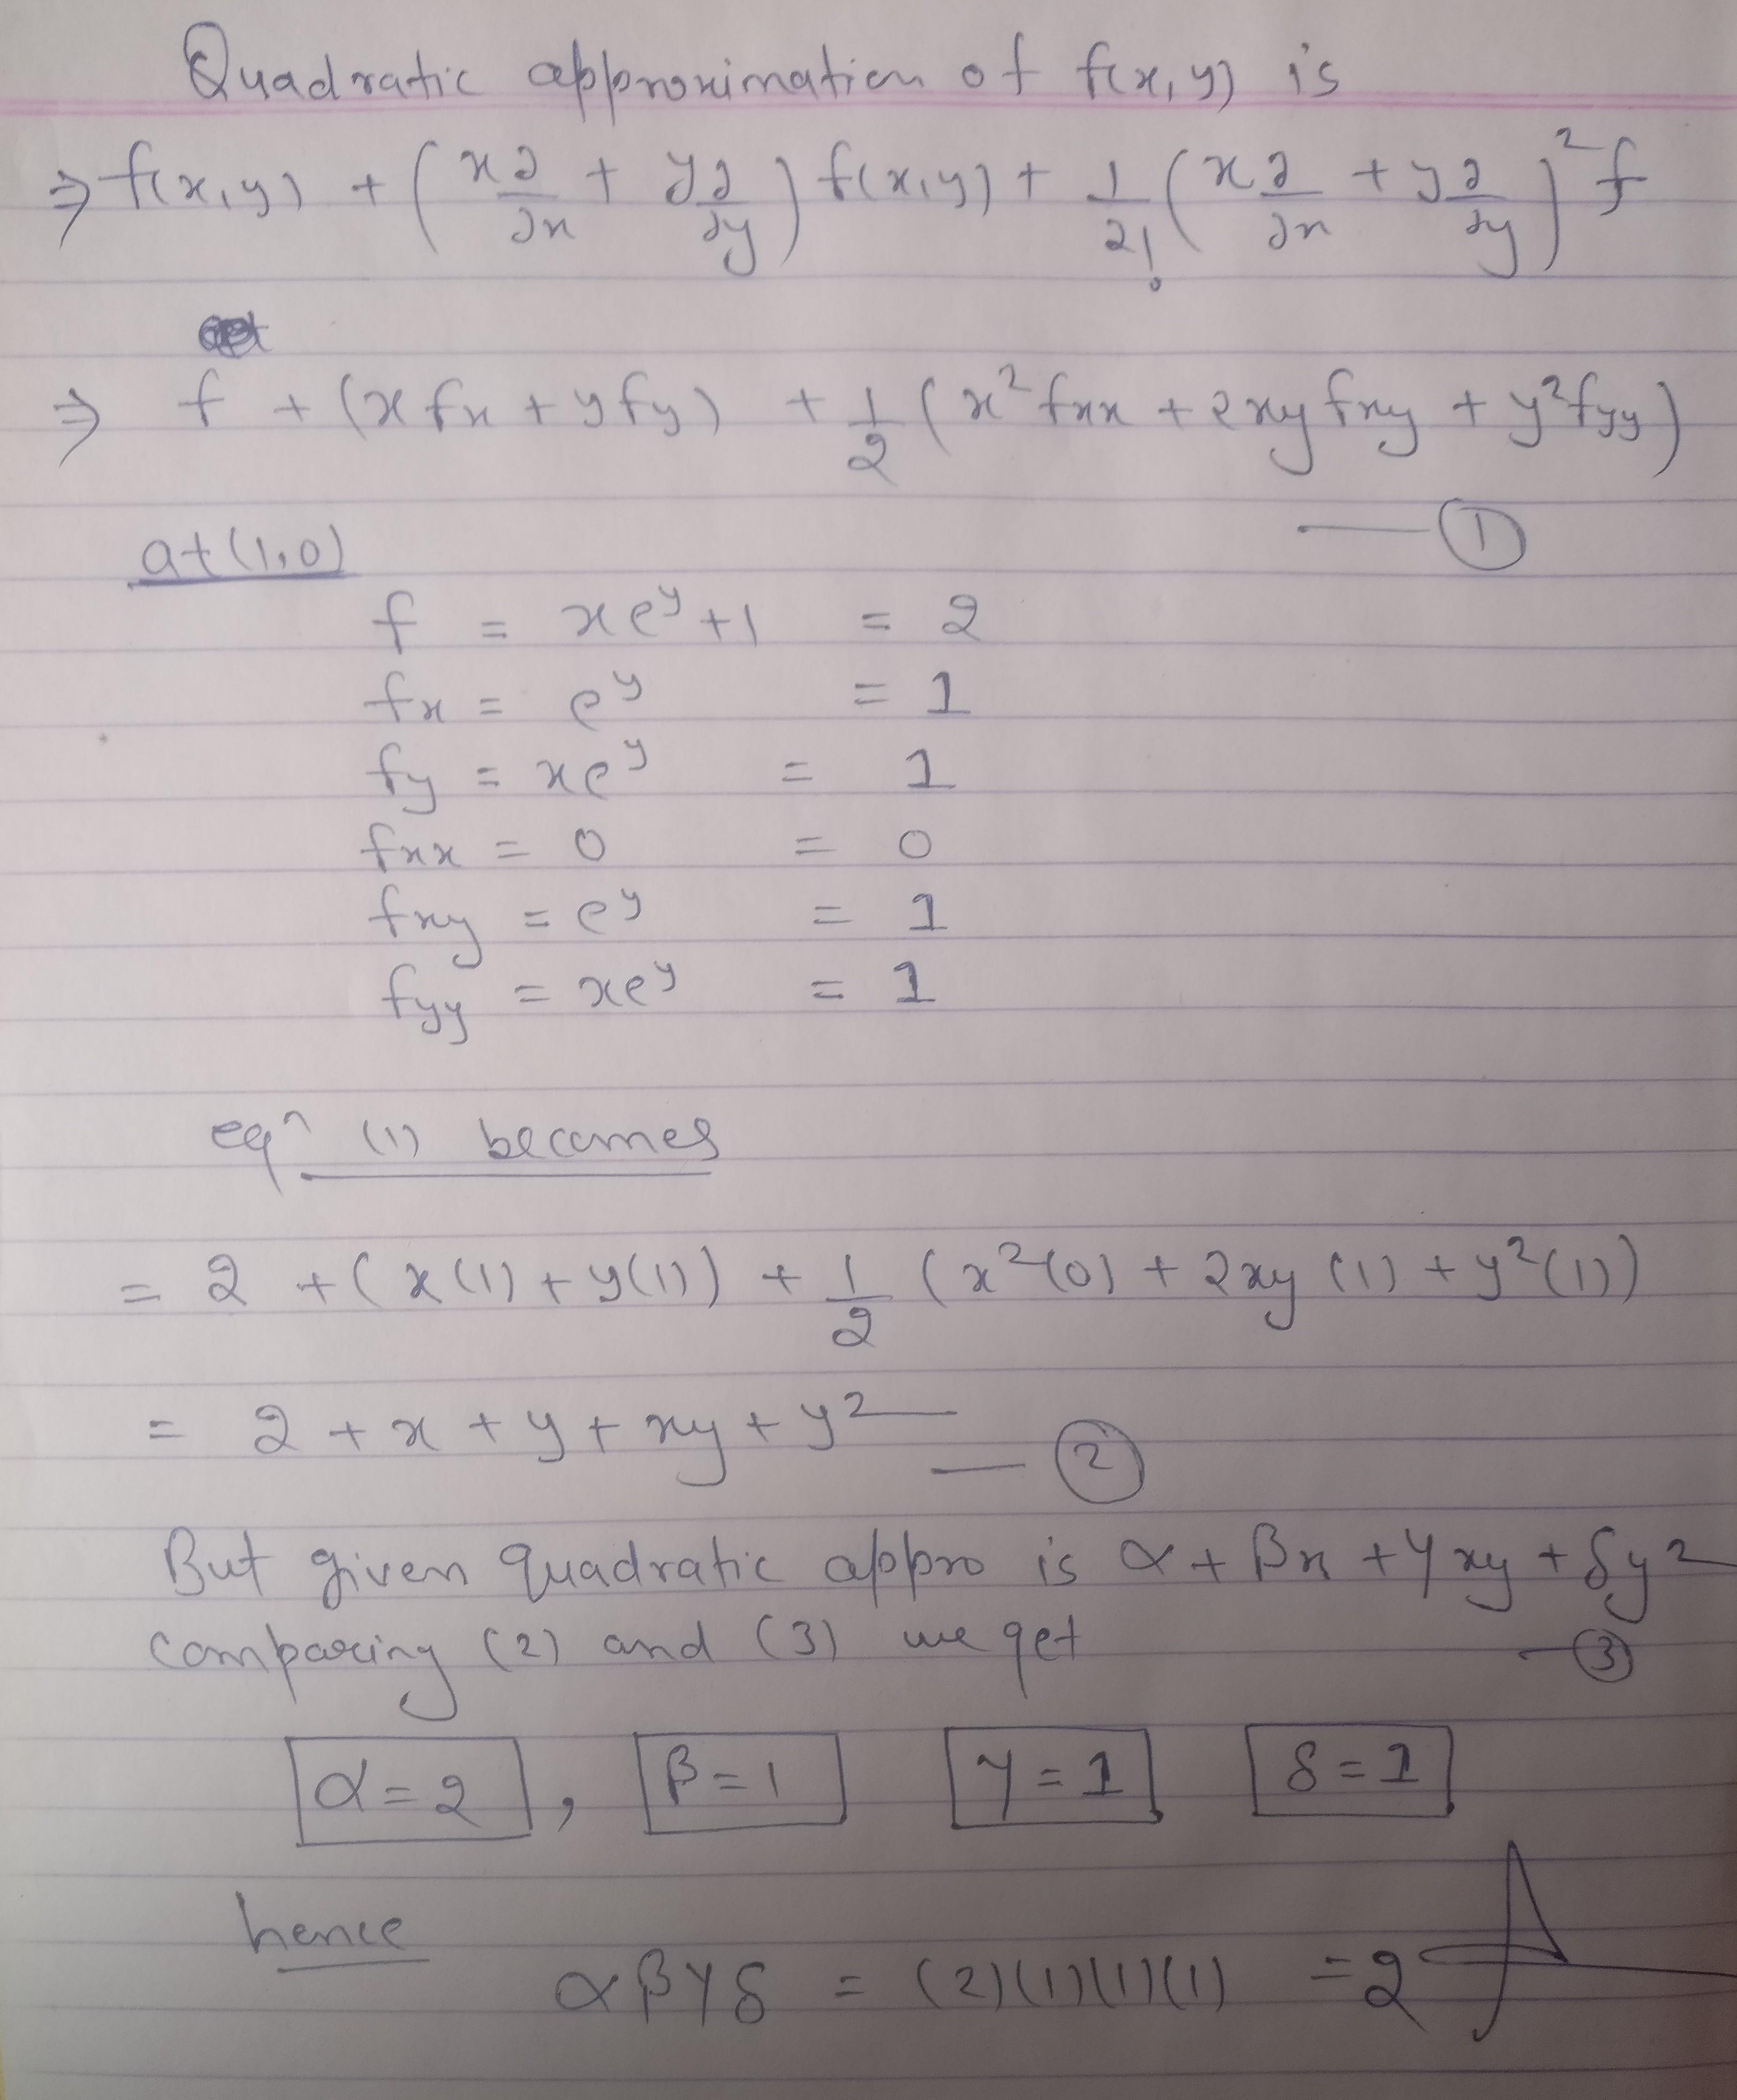 Quadratic approximation of f(x,y) is
⇒ f(x,y) + (x∂/∂x + y∂/∂y) f(x,y) + 1/2! (x∂/∂x + y∂/∂y)² f
⇒ f + (x fx + y fy) + 1/2 (x² fxx + 2xy fxy + y² fyy)
— ①
at (1,0)
f = xe^y + 1 = 2
fx = e^y = 1
fy = xe^y = 1
fxx = 0 = 0
fxy = e^y = 1
fyy = xe^y = 1
eqⁿ (1) becomes
= 2 + (x(1) + y(1)) + 1/2 (x²(0) + 2xy (1) + y²(1))
= 2 + x + y + xy + y² — ②
But given quadratic appro is α + βx + γxy + δy²
comparing (2) and (3) we get — ③
α = 2 , β = 1 γ = 1 δ = 1
hence
αβγδ = (2)(1)(1)(1) = 2